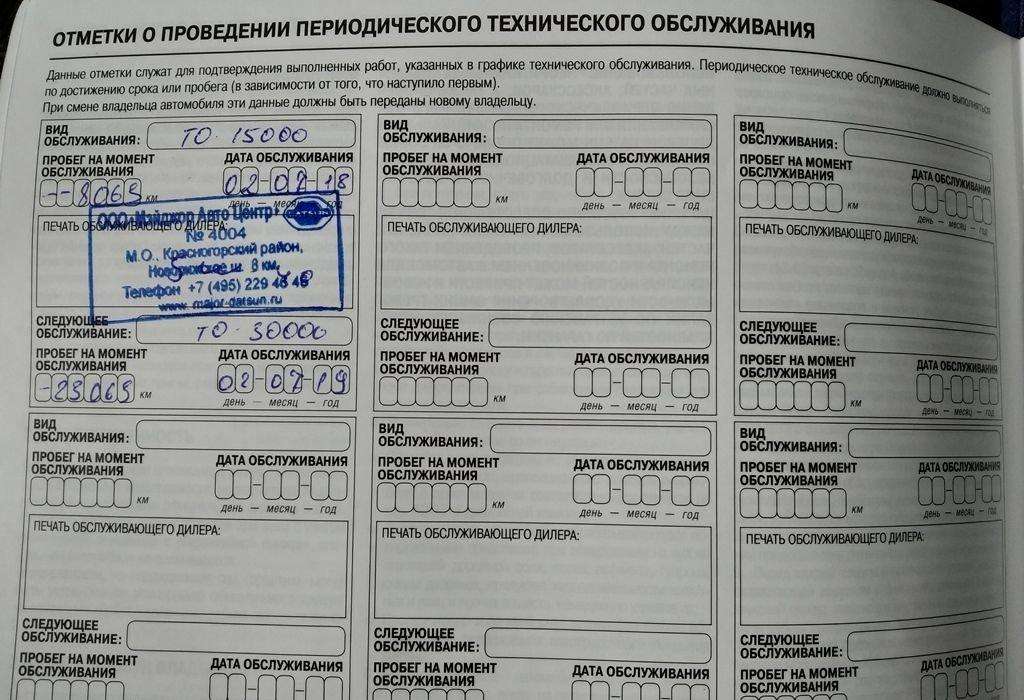 ОТМЕТКИ О ПРОВЕДЕНИИ ПЕРИОДИЧЕСКОГО ТЕХНИЧЕСКОГО ОБСЛУЖИВАНИЯ
Данные отметки служат для подтверждения выполненных работ, указанных в графике технического обслуживания. Периодическое техническое обслуживание должно выполняться
по достижению срока или пробега (в зависимости от того, что наступило первым).
При смене владельца автомобиля эти данные должны быть переданы новому владельцу.
ВИД
ОБСЛУЖИВАНИЯ: ТО 15000
ПРОБЕГ НА МОМЕНТ
ОБСЛУЖИВАНИЯ
ДАТА ОБСЛУЖИВАНИЯ
--8065 км
02-07-18
день — месяц — год
ПЕЧАТЬ ОБСЛУЖИВАЮЩЕГО ДИЛЕРА:
ООО «Мэйджор Авто Центр»
№ 4004
М.О., Красногорский район,
8 км,
Телефон +7 (495) 229
www. major-datsun.ru
СЛЕДУЮЩЕЕ
ОБСЛУЖИВАНИЕ: ТО 30000
ПРОБЕГ НА МОМЕНТ
ОБСЛУЖИВАНИЯ
ДАТА ОБСЛУЖИВАНИЯ
-23065 км
02-07-19
день — месяц — год
ВИД
ОБСЛУЖИВАНИЯ:
ПРОБЕГ НА МОМЕНТ
ОБСЛУЖИВАНИЯ
ДАТА ОБСЛУЖИВАНИЯ
км
день — месяц — год
ПЕЧАТЬ ОБСЛУЖИВАЮЩЕГО ДИЛЕРА:
СЛЕДУЮЩЕЕ
ОБСЛУЖИВАНИЕ:
ПРОБЕГ НА МОМЕНТ
ОБСЛУЖИВАНИЯ
ДАТА ОБСЛУЖИВАНИЯ
ВИД
ОБСЛУЖИВАНИЯ:
ПРОБЕГ НА МОМЕНТ
ОБСЛУЖИВАНИЯ
ДАТА ОБСЛУЖИВАНИЯ
км
день — месяц — год
ПЕЧАТЬ ОБСЛУЖИВАЮЩЕГО ДИЛЕРА:
СЛЕДУЮЩЕЕ
ОБСЛУЖИВАНИЕ:
ПРОБЕГ НА МОМЕНТ
ОБСЛУЖИВАНИЯ
ДАТА ОБСЛУЖИВАНИЯ
км
день — месяц — год
ВИД
ОБСЛУЖИВАНИЯ:
ПРОБЕГ НА МОМЕНТ
ОБСЛУЖИВАНИЯ
ДАТА ОБСЛУЖИВАНИЯ
км
день — месяц — год
ПЕЧАТЬ ОБСЛУЖИВАЮЩЕГО ДИЛЕРА:
СЛЕДУЮЩЕЕ
ОБСЛУЖИВАНИЕ:
ПРОБЕГ НА МОМЕНТ
ОБСЛУЖИВАНИЯ
ДАТА ОБСЛУЖИВАНИЯ
ВИД
ОБСЛУЖИВАНИЯ:
ПРОБЕГ НА МОМЕНТ
ОБСЛУЖИВАНИЯ
ДАТА ОБСЛУЖИВАНИЯ
км
день — месяц — год
ПЕЧАТЬ ОБСЛУЖИВАЮЩЕГО ДИЛЕРА:
СЛЕДУЮЩЕЕ
ОБСЛУЖИВАНИЕ:
ПРОБЕГ НА МОМЕНТ
ОБСЛУЖИВАНИЯ
ДАТА ОБСЛУЖИВАНИЯ
км
день — месяц — год
ВИД
ОБСЛУЖИВАНИЯ:
ПРОБЕГ НА МОМЕНТ
ОБСЛУЖИВАНИЯ
ДАТА ОБСЛУЖИВАНИЯ
км
день — месяц — год
ПЕЧАТЬ ОБСЛУЖИВАЮЩЕГО ДИЛЕРА:
СЛЕДУЮЩЕЕ
ОБСЛУЖИВАНИЕ:
ПРОБЕГ НА МОМЕНТ
ОБСЛУЖИВАНИЯ
ДАТА ОБСЛУЖИВАНИЯ